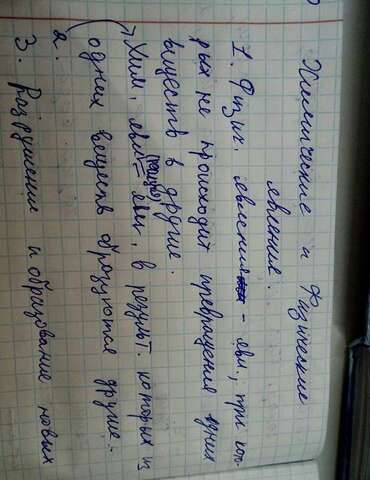 Химические и физические
явление.
1. Физич. явления - явл., при кот-
рых не происходит превращения одних
веществ в другие.
Хим. явл = явл, в результ. которых из
одних веществ образуются другие -
2.
3. Разрушение и образование новых